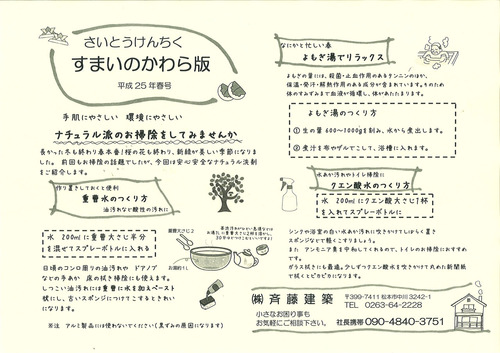 さいとうけんちく
すまいのかわら版
平成25年春号
手肌にやさしい 環境にやさしい
ナチュラル派のお掃除をしてみませんか
長かった冬も終わり春本番！桜の花も終わり、新緑が美しい季節になりま
した。 前回もお掃除の話題でしたが、今回は安心安全なナチュラル洗剤
をご紹介します。
作り置きしておくと便利
重曹水のつくり方
油汚れなど酸性の汚れに
水 200mlに重曹大さじ半分
を混ぜてスプレーボトルに入れる
重曹大さじ2
お湯
日頃のコンロ周りの油汚れや ドアノブ
などの手あか 床の拭き掃除にも使えます。
しつこい油汚れには重曹に水を加えペースト
状にし、古いスポンジにつけてこするときれい
になります。
※注 アルミ製品には使わないでください(黒ずみの原因になります)
なにかと忙しい春
よもぎ湯でリラックス
よもぎの葉には、殺菌・止血作用のあるタンニンのほか、
保温・発汗・解熱作用のある成分が含まれています。そのため
体のすみずみまで血液が循環し、体があたたまります。
よもぎ湯のつくり方
① 生の葉 600～1000gを刻み、水から煮出します。
② 煮汁を布やザルでこして、浴槽に入れます。
水あか汚れやトイレ掃除に
クエン酸水のつくり方
水 200mlにクエン酸大さじ1杯
を入れてスプレーボトルに
シンクや浴室の白い水あか汚れに吹きかけてしばらく置き
スポンジなどで軽くこすりましょう。
また アンモニア臭を中和してくれるので、トイレのお掃除におすすめ
です。
ガラス拭きにも最適。少しずつクエン酸水を吹きかけて丸めた新聞紙
で拭くとピカピカになります。
㈱ 斉藤建築
〒399-7411 松本市中川3242-1
TEL 0263-64-2228
小さなお困り事も
お気軽にご相談下さい。
社長携帯 090-4840-3751